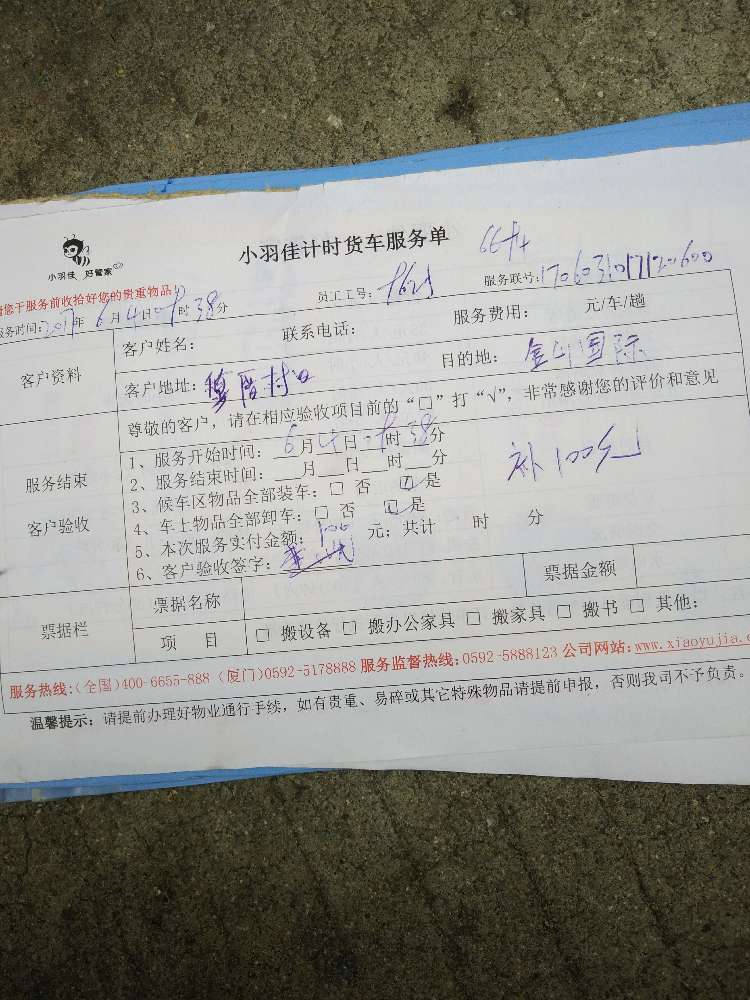 小羽佳 好管家
小羽佳计时货车服务单
请您于服务前收拾好您的贵重物品
员工工号:
服务联号:1706031017120600
服务时间:2017年6月4日 时38分
客户资料
客户姓名: 联系电话: 服务费用: 元/车/趟
客户地址: 村口 目的地: 金山国际
服务结束
客户验收
尊敬的客户，请在相应验收项目前的“□”打“√”，非常感谢您的评价和意见
1、服务开始时间: 6月4日 时38分
2、服务结束时间: 月 日 时 分
3、候车区物品全部装车: □ 否 ☑ 是
4、车上物品全部卸车: □ 否 ☑ 是
5、本次服务实付金额: 100 元; 共计 时 分
6、客户验收签字:
补100元
票据栏
票据名称
票据金额
项 目
□ 搬设备 □ 搬办公家具 □ 搬家具 □ 搬书 □ 其他:
服务热线:(全国)400-6655-888 (厦门)0592-5178888 服务监督热线:0592-5888123 公司网站:www.xiaoyujia.c
温馨提示: 请提前办理好物业通行手续，如有贵重、易碎或其它特殊物品请提前申报，否则我司不予负责。